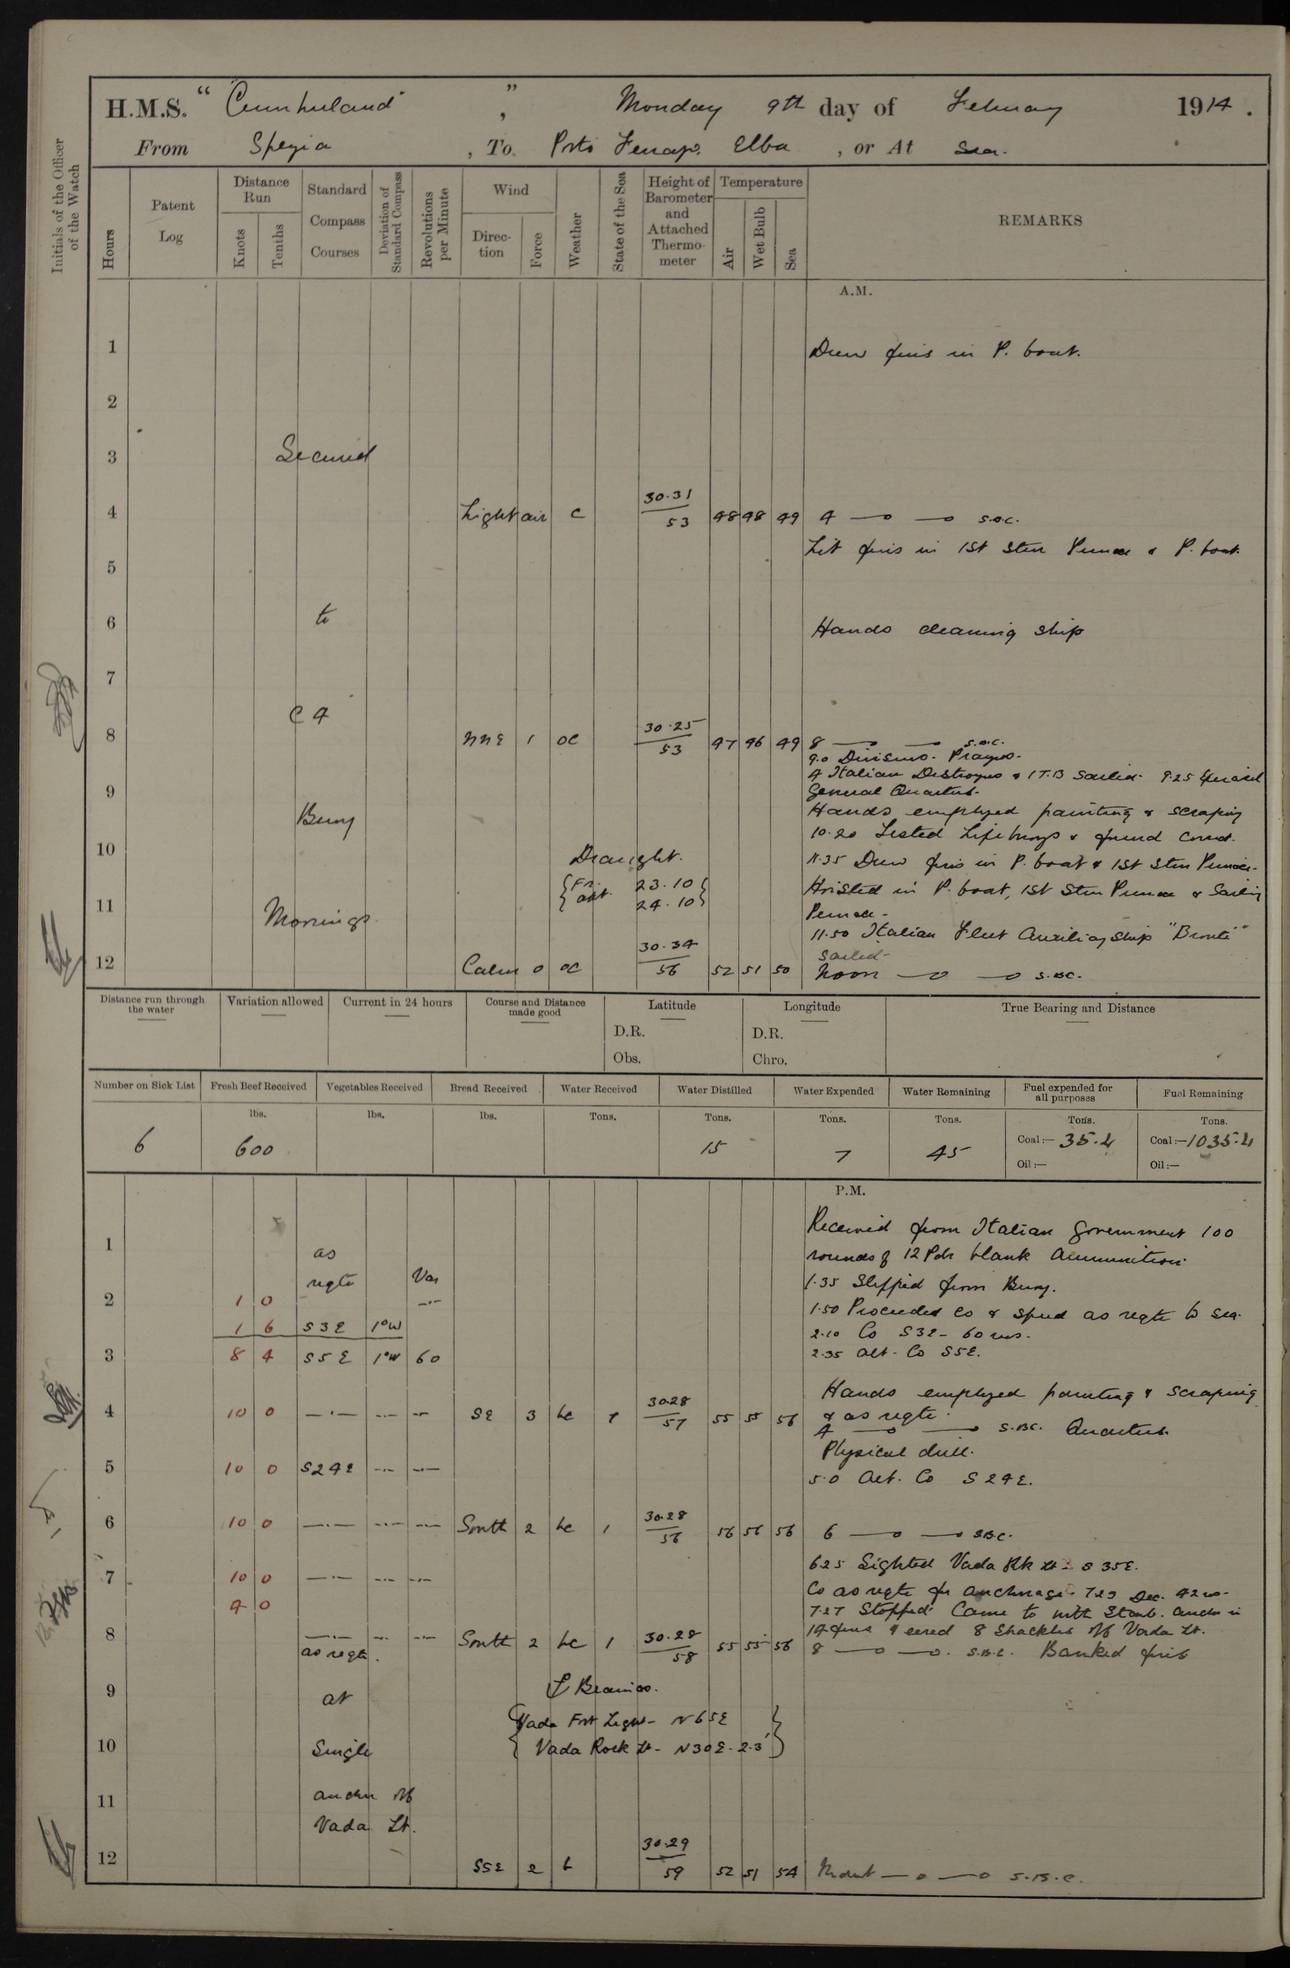 H.M.S. "Cumberland", Monday 9th day of February 1914.
From Spezia, To Porto Ferrajo. Elba, or At Sea.
Initials of the Officer of the Watch
Hours
Patent Log
Distance Run
Knots
Tenths
Standard Compass Courses
Deviation of Standard Compass
Revolutions per Minute
Wind
Direction
Force
Weather
State of the Sea
Height of Barometer and Attached Thermometer
Temperature
Air
Wet Bulb
Sea
REMARKS
A.M.
1 Drew fires in P. boat.
2
3 Secured
4 Light air c 30.31/53 48 48 49 4 —o —o S.B.C.
Lit fires in 1st Stm Pinnace & P. boat.
5
6 to Hands cleaning ship
7
C 4
8 NNE 1 oc 30.25/53 47 46 49 8 —o —o S.B.C.
9.0 Divisions. Prayers.
4 Italian Destroyers & 1 T.B sailed. 9.25 Exercised
9 General Quarters.
Buoy Hands employed painting & scraping
10.20 Tested Lifebuoys & found correct.
10 Draught. 11.35 Drew fires in P. boat & 1st Stm Pinnace.
{For. 23.10} Hoisted in P. boat, 1st Stm Pinnace & Sailing
11 {aft. 24.10} Pinnace.
Moorings 11.50 Italian Fleet Auxiliary Ship "Bronte"
sailed.
12 Calm 0 oc 30.34/56 52 51 50 Noon —o —o S.B.C.
Distance run through the water
Variation allowed
Current in 24 hours
Course and Distance made good
Latitude
D.R.
Obs.
Longitude
D.R.
Chro.
True Bearing and Distance
Number on Sick List
Fresh Beef Received
Vegetables Received
Bread Received
Water Received
Water Distilled
Water Expended
Water Remaining
Fuel expended for all purposes
Fuel Remaining
lbs. lbs. lbs. Tons. Tons. Tons. Tons. Tons. Tons.
6 600 15 7 45 Coal:— 35.4 Coal:— 1035.4
Oil:— Oil:—
P.M.
Received from Italian Government 100
1 as rounds of 12 Pdr blank ammunition.
reqte Var 1.35 Slipped from Buoy.
2 1 0 —·— 1.50 Proceeded Co & speed as reqte to sea.
1 6 S3E 1°W 2.10 Co S3E - 60 revs.
3 8 4 S5E 1°W 60 2.35 alt. Co S5E.
Hands employed painting & scraping
4 10 0 —·— —·— —·— SE 3 bc 1 30.28/57 55 55 56 & as reqte.
4 —o —o S.B.C. Quarters.
Physical drill.
5 10 0 S24E —·— —·— 5.0 Alt. Co S24E.
6 10 0 —·— —·— —·— South 2 bc 1 30.28/56 56 56 56 6 —o —o S.B.C.
6.25 Sighted Vada Rk Lt. S35E.
7 10 0 —·— —·— —·— Co as reqte for anchorage. 7.23 Dec. 42 revs.
4 0 7.27 Stopped. Came to with Starb. anchor in
14 fms & veered 8 Shackles off Vada Lt.
8 —·— —·— —·— South 2 bc 1 30.28/58 55 55 56 8 —o —o. S.B.C. Banked fires
as reqte.
9 at Bearings.
{Vada Fort Light - N65E
10 Single Vada Rock Lt - N30E - 2.3'}
11 anchor off
Vada Lt.
12 SSE 2 b 30.29/59 52 51 54 Midnt —o —o S.B.C.